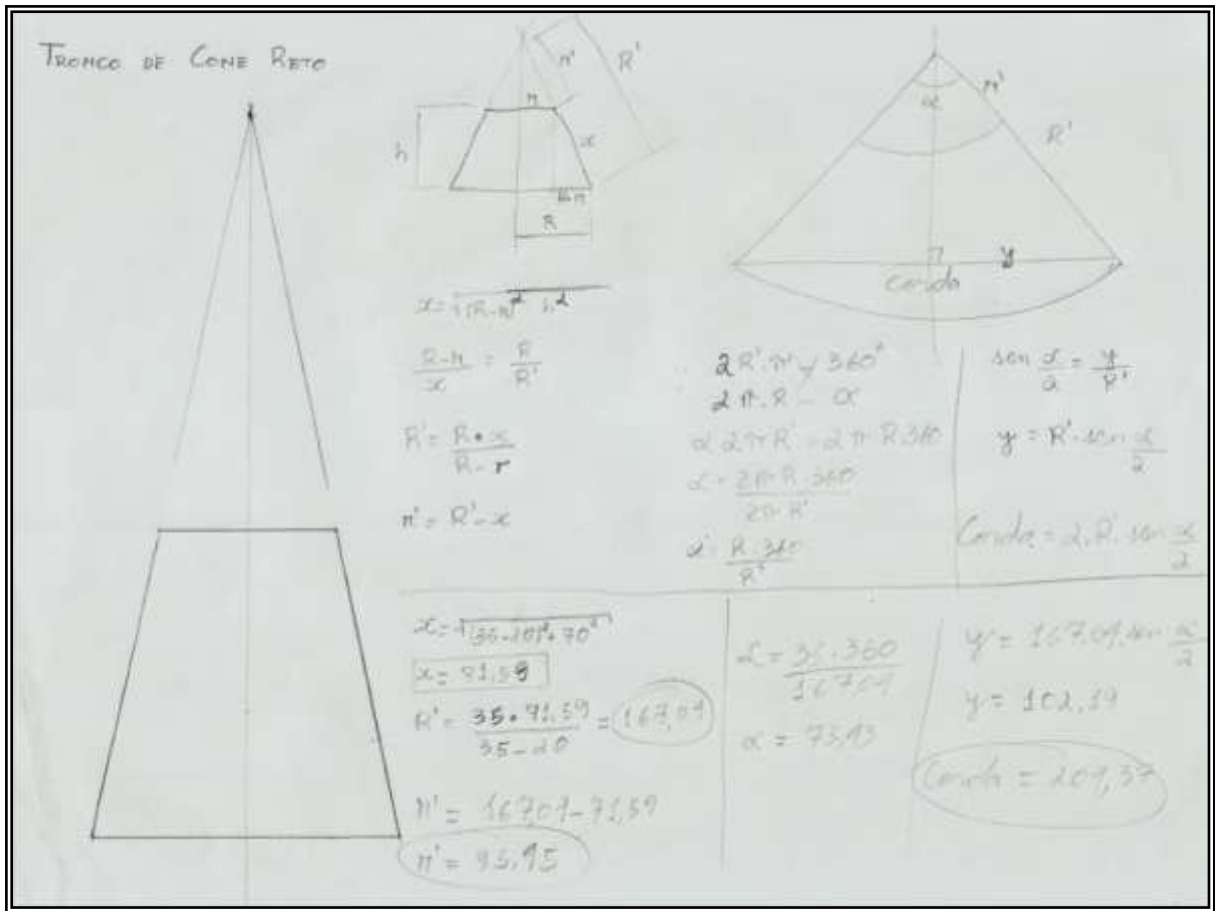 TRONCO DE CONE RETO
r'
R'
r
h
x
R
α
r'
R'
y
corda
x = √(R-r)² h²
R-r/x = R/R'
R' = R•x/R-r
r' = R'-x
2R'.π 360°
2π.R - α
α 2πR' = 2πR.360
α = 2πR.360/2πR'
α = R.360/R'
sen α/2 = y/R'
y = R'.sen α/2
Corda = 2.R'.sen α/2
x = √(35-20)²+70²
x = 71,59
R' = 35•71,59/35-20 = 167,04
r' = 167,04-71,59
r' = 95,45
α = 35.360/167,04
α = 75,43
y = 167,04.sen α/2
y = 102,19
Corda = 204,37